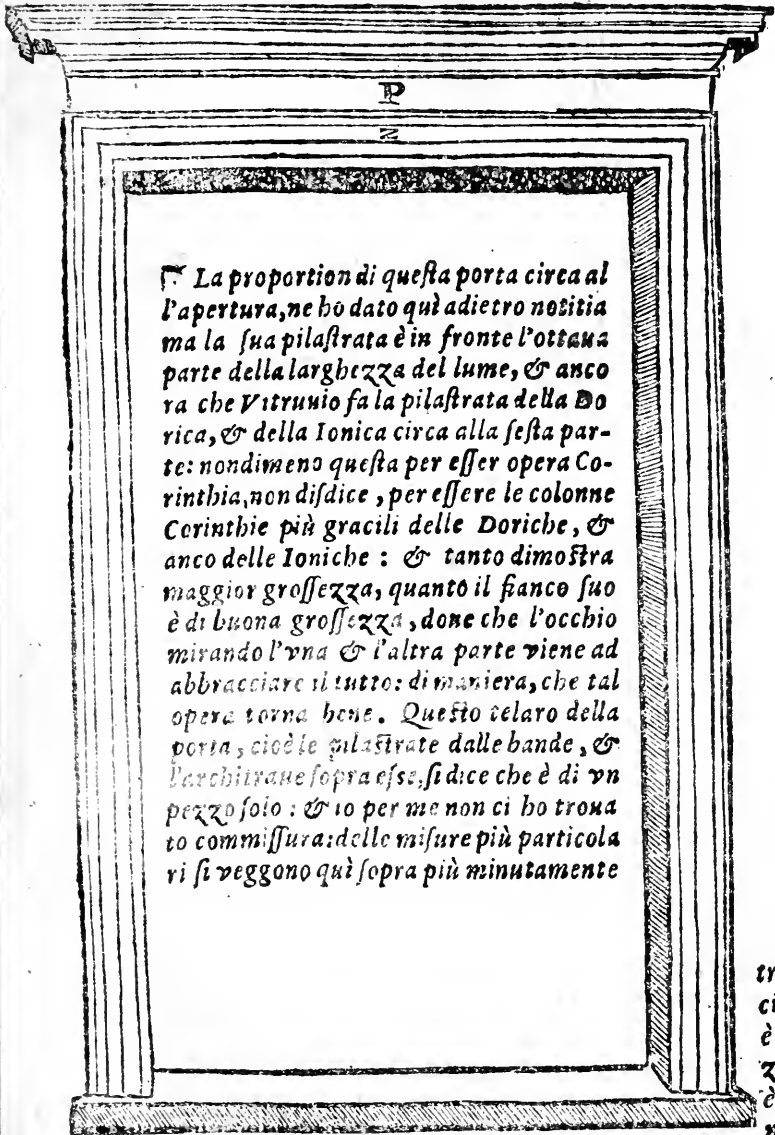 P
Z
La proportion di queſta porta circa al
l'apertura, ne ho dato quì adietro notitia
ma la ſua pilaſtrata è in fronte l'ottaua
parte della larghezza del lume, & anco
ra che Vitruuio fa la pilaſtrata della Do
rica, & della Ionica circa alla ſeſta par-
te: nondimeno queſta per eſſer opera Co-
rinthia, non diſdice, per eſſere le colonne
Corinthie più gracili delle Doriche, &
anco delle Ioniche: & tanto dimoſtra
maggior groſſezza, quanto il fianco ſuo
è di buona groſſezza, done che l'occhio
mirando l'vna & l'altra parte viene ad
abbracciare il tutto: di maniera, che tal
opera torna bene. Queſto telaro della
porta, cioè le pilaſtrate dalle bande, &
l'architraue ſopra eſse, ſi dice che è di vn
pezzo ſolo: & io per me non ci ho troua
to commiſſura: delle miſure più particola
ri ſi veggono quì ſopra più minutamente
tr
ci
è
z
è